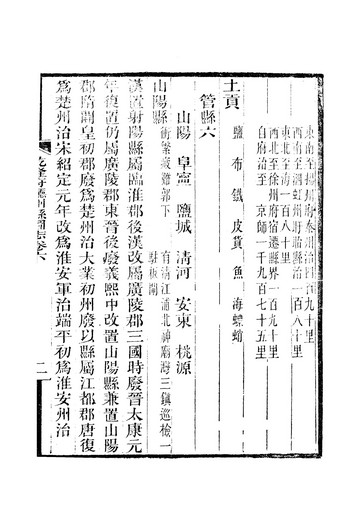 東南至揚州府泰州治四百九十里
西南至泗虹州盱眙縣治一百八十里
東北至海一百八十里
西北至徐州府宿遷縣界一百九十里
自府治至　京師一千九百七十五里
土貢
鹽　布　鐵　皮貨　魚　海螵蛸
管縣六
山陽　阜寧　鹽城　清河　安東　桃源
山陽縣衝繁疲難郭下　有清江浦北神廟灣三鎮巡檢一駐板閘
漢置射陽縣屬臨淮郡後漢改屬廣陵郡三國時廢晉太康元
年復置仍屬廣陵郡東晉後廢義熙中改置山陽縣兼置山陽
郡隋開皇初郡廢爲楚州治大業初州廢以縣屬江都郡唐復
爲楚州治宋紹定元年改爲淮安軍治端平初爲淮安州治
乾隆府廳州縣圖志卷六
二